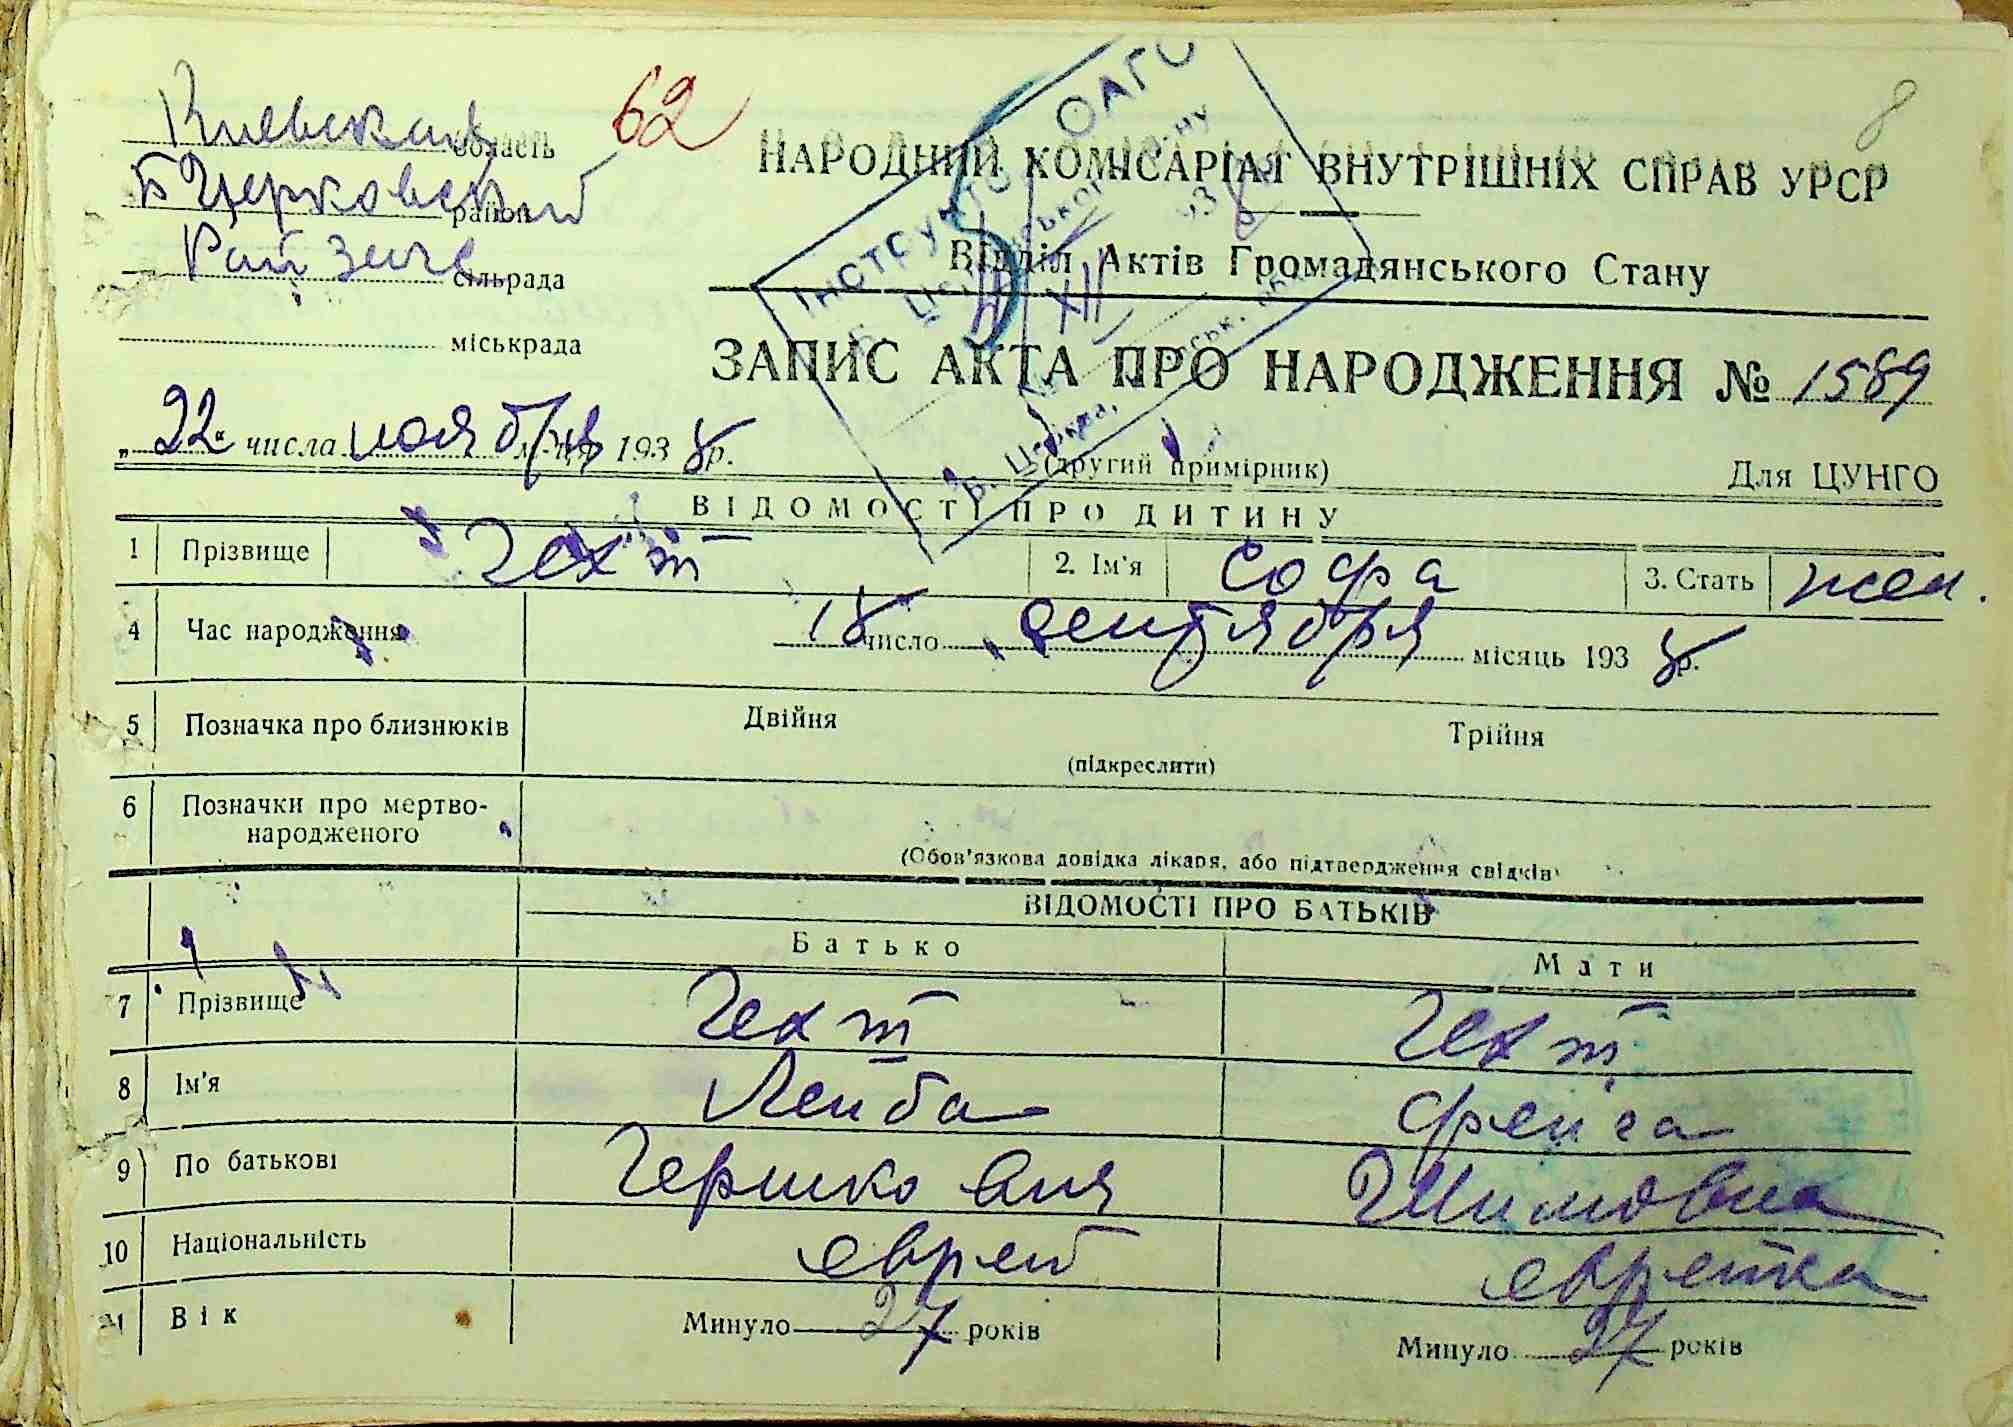 Киевская область 62 8
Б Церковский район НАРОДНИЙ КОМІСАРІАТ ВНУТРІШНІХ СПРАВ УРСР
Рай загс сільрада Відділ Актів Громадянського Стану
міськрада
ЗАПИС АКТА ПРО НАРОДЖЕННЯ № 1589
„22“ числа ноября м-ця 1938 р. (другий примірник) Для ЦУНГО
ВІДОМОСТІ ПРО ДИТИНУ
1 Прізвище Гехт 2. Ім'я Софа 3. Стать жен.
4 Час народження 18 число сентября місяць 1938 р.
5 Позначка про близнюків Двійня Трійня
(підкреслити)
6 Позначки про мертво-
народженого
(Обов'язкова довідка лікаря, або підтвердження свідків)
ВІДОМОСТІ ПРО БАТЬКІВ
Батько Мати
7 Прізвище Гехт Гехт
8 Ім'я Лейба Фейга
9 По батькові Гершкович
10 Національність еврей еврейка
11 Вік Минуло 27 років Минуло 27 років